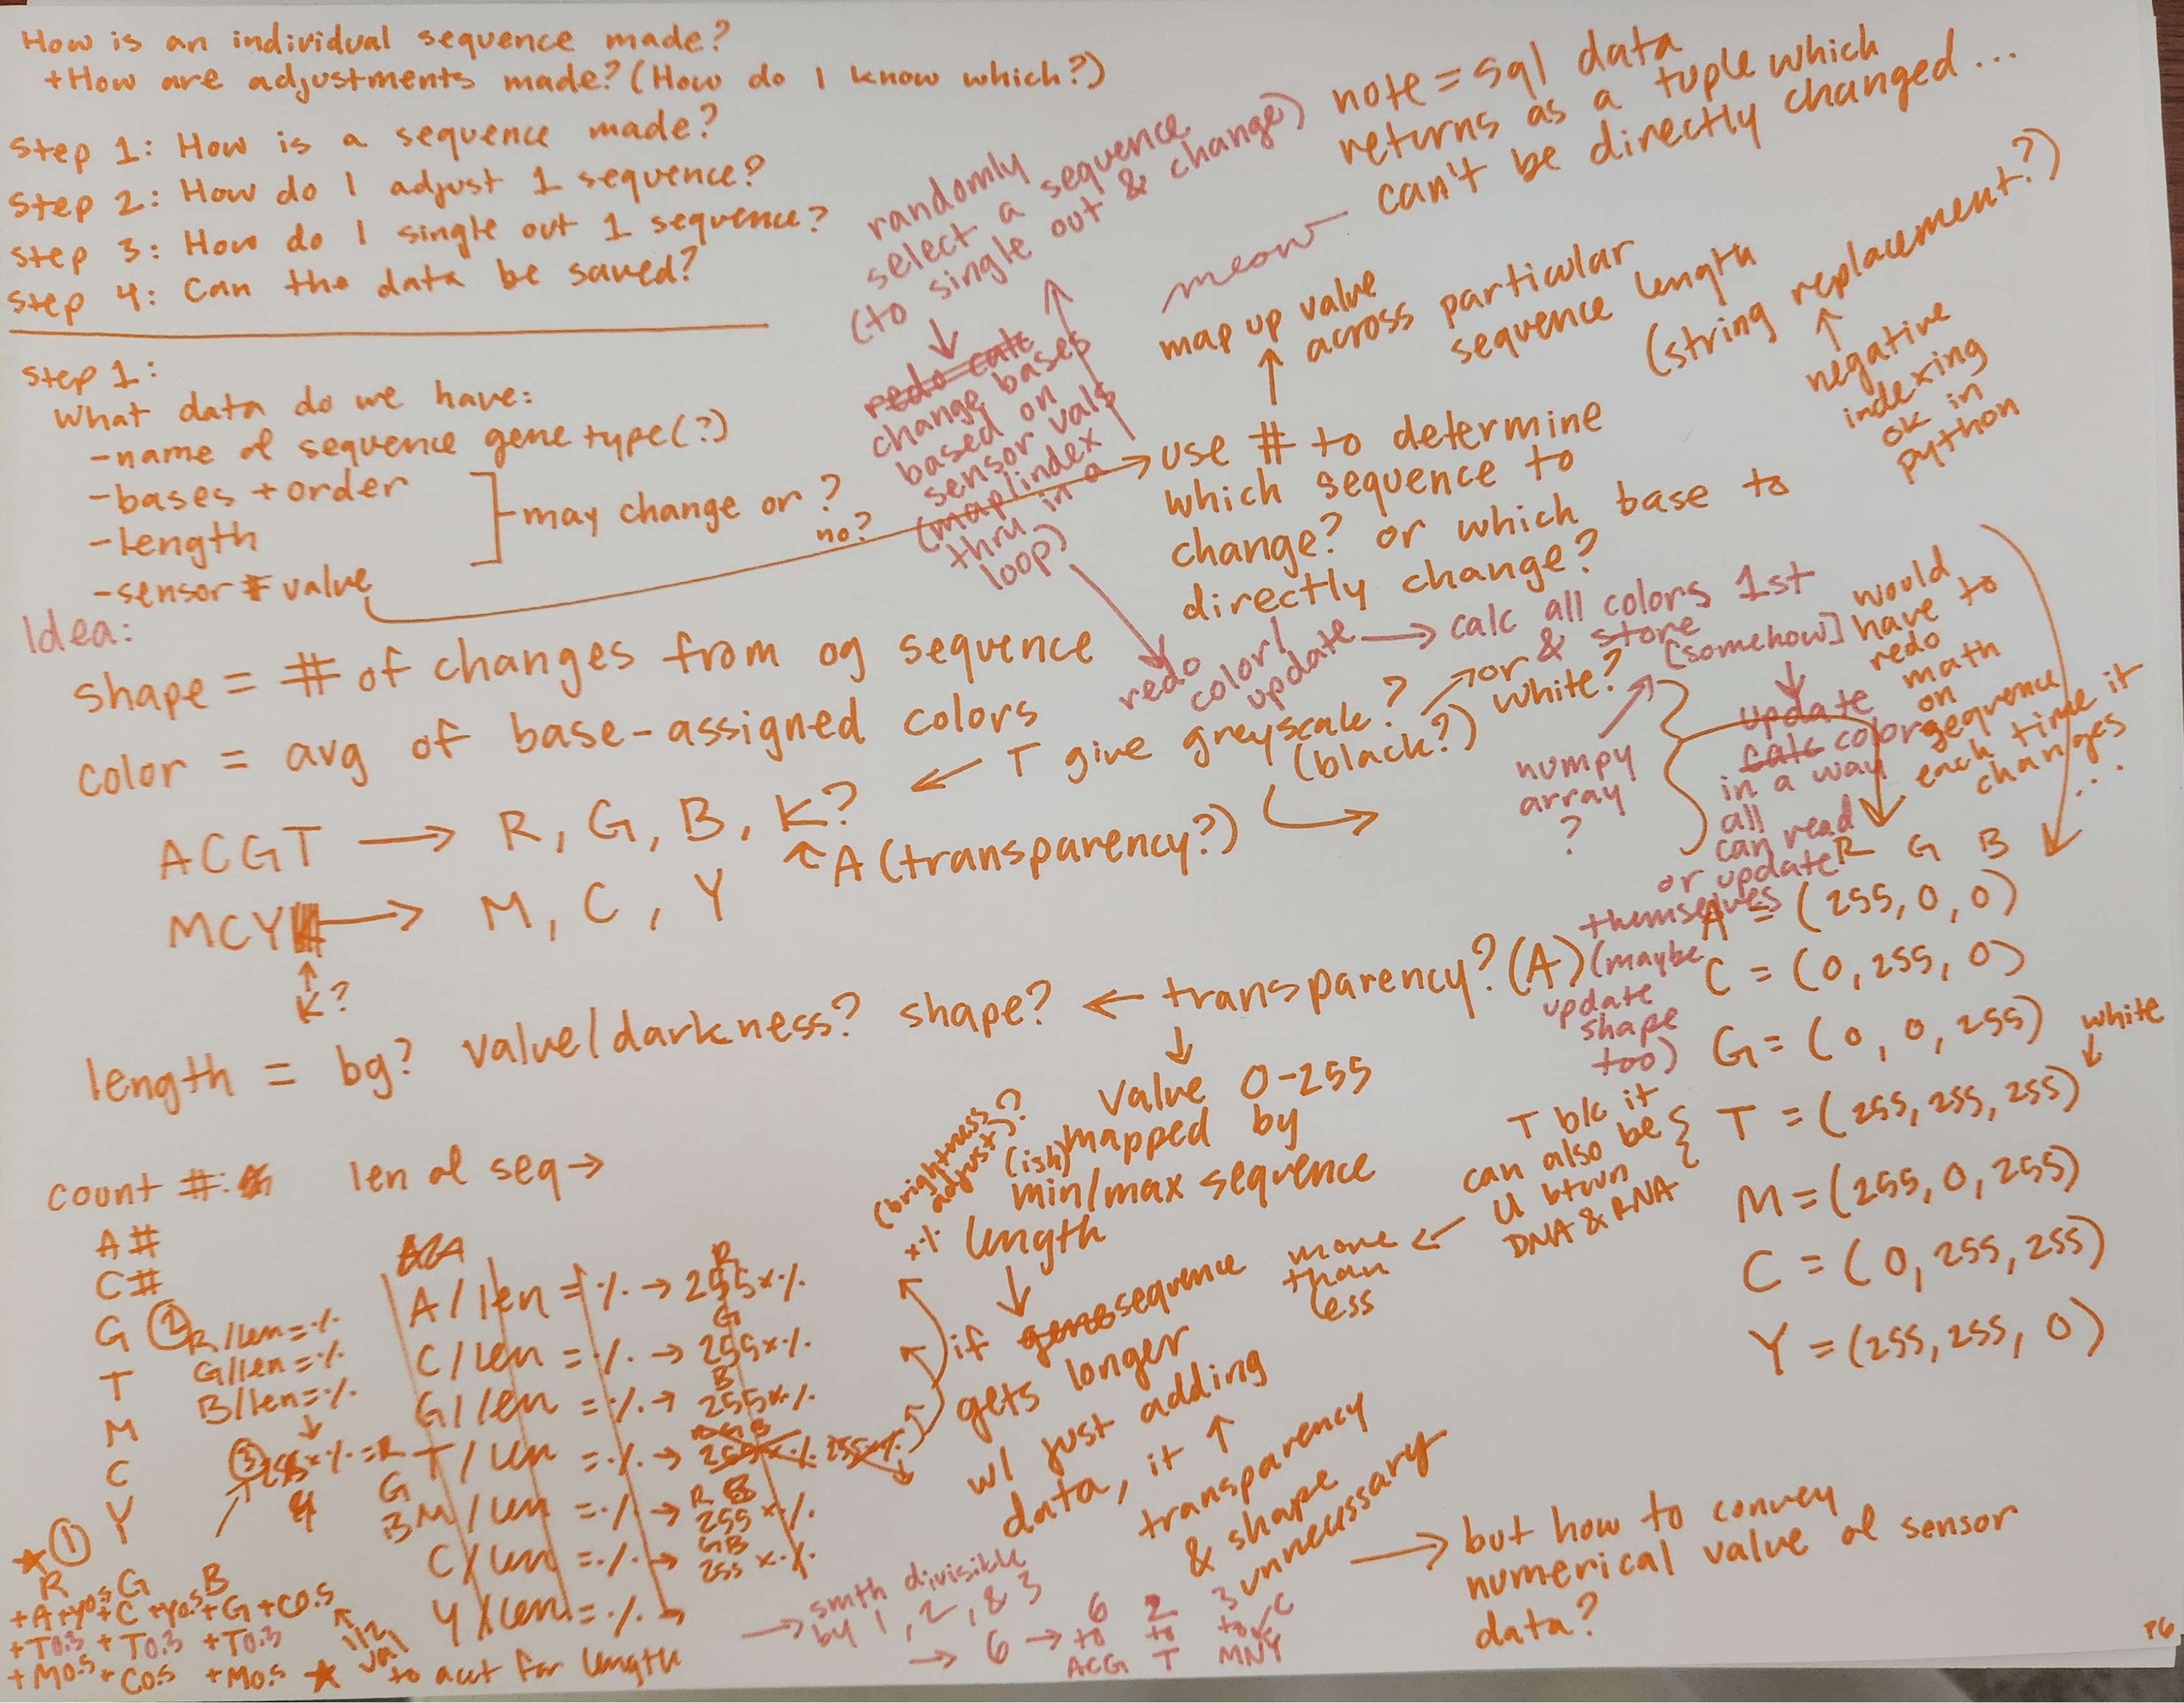 How is an individual sequence made?
+How are adjustments made? (How do I know which?)
Step 1: How is a sequence made?
Step 2: How do I adjust 1 sequence?
Step 3: How do I single out 1 sequence?
Step 4: Can the data be saved?
randomly
select a sequence
(to single out & change)
note = sql data
returns as a tuple which
can't be directly changed...
meow
Step 1:
What data do we have:
-name of sequence gene type(?)
-bases + order
-length
-sensor # value
may change or no?
?
redo calc
change bases
based on
sensor vals
(map/index
thru in a
loop)
map up value
across particular
sequence length
(string replacement?)
negative
indexing
ok in
python
use # to determine
which sequence to
change? or which base to
directly change?
redo
color!
update → calc all colors 1st
& store
(somehow)
numpy
array
?
would
have to
redo
math
on
sequence
each time it
changes
...
update
calc color
in a way
all
can read
or update
themselves
(maybe
update
shape
too)
Idea:
shape = # of changes from og sequence
color = avg of base-assigned colors
← T give greyscale? → or white?
(black?)
ACGT → R, G, B, K?
↑ A (transparency?)
MCY → M, C, Y
↑
K?
length = bg? value/darkness? shape? ← transparency? (A)
↓
Value 0-255
(ish) mapped by
min/max sequence
length
(brightness?
adjust)?
R G B
A = (255, 0, 0)
C = (0, 255, 0)
G = (0, 0, 255)
white
↓
T = (255, 255, 255)
M = (255, 0, 255)
C = (0, 255, 255)
Y = (255, 255, 0)
T b/c it
can also be
U btwn
DNA & RNA
count #: len of seq →
A#
C#
G
T
M
C
Y
② R/len = %
G/len = %
B/len = %
↓
③ 255 x % = R
G
B
R
A/len = % → 255 x %
G
C/len = % → 255 x %
B
G/len = % → 255 x %
R G B
T/len = % → 255 x % 255 x %
R B
M/len = % → 255 x %
G B
C/len = % → 255 x %
Y/len = % →
if sequence more
than
less
gets longer
w/ just adding
data, it ↑
transparency
& shape
unnecessary
→ but how to convey
numerical value of sensor
data?
★ ①
R G B
+A+Y0.5 +C+Y0.5 +G+C0.5
+T0.3 +T0.3 +T0.3
+M0.5 +C0.5 +M0.5 ★
1/2
val
to acct for length
→ smth divisible
by 1, 2, & 3
→ 6 → 6 2 3
to to to
ACG T MNY
C
P6